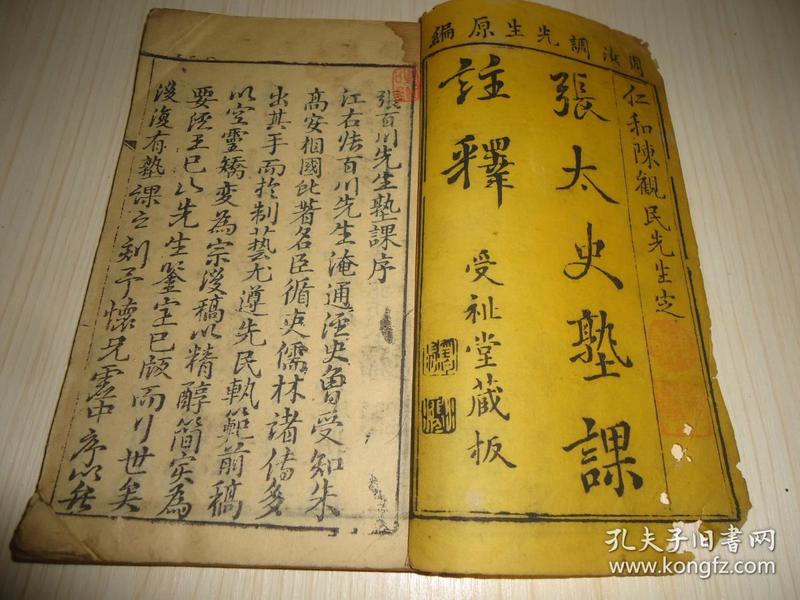 周汝調先生原編
仁和陳觀民先生定
張太史塾課
註釋
受祉堂藏板
張百川先生塾課序
江右張百川先生淹通經史曾受知朱
高安相國此著名臣循吏儒林諸傳多
出其手而於制藝尤遵先民軌範前稿
以空靈矯變為宗後稿以精醇簡实為
要經王已山先生鑒定已版而行世矣
後復有塾課之刻予懷兄雲中序以
孔夫子旧书网
www.kongfz.com